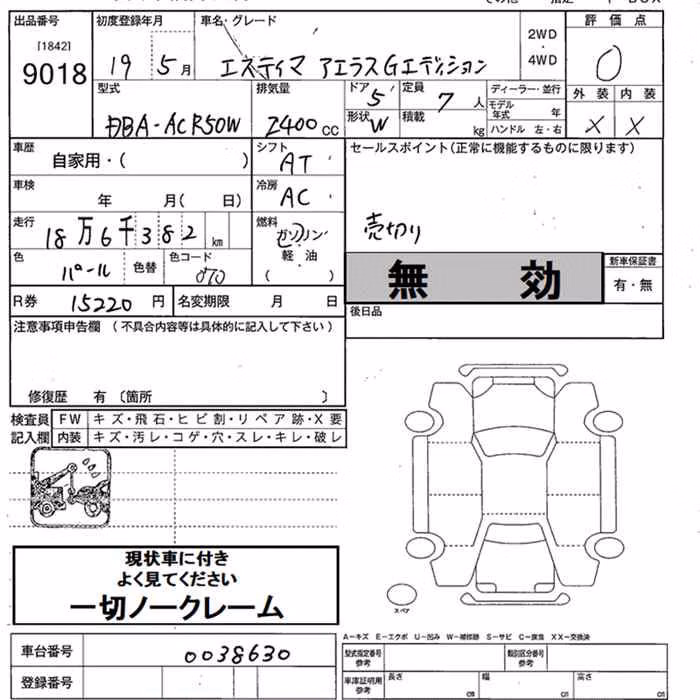 出品番号 初度登録年月 車名・グレード 評価点
[1842]
9018 19 5月 エスティマ アエラスGエディション 2WD・4WD 0
型式 排気量 ドア 5 定員 7人 ディーラー・並行 外装 内装
モデル年式 年
DBA-ACR50W 2400cc 形状 W 積載 kg ハンドル 左・右 X X
車歴 自家用・( ) シフト AT セールスポイント(正常に機能するものに限ります)
車検 年 月( 日) 冷房 AC
走行 18万6千382km 燃料 ガソリン 売切り
軽油
( )
色 パール 色替 色コード 070 無効 新車保証書
有・無
R券 15220円 名変期限 月 日 後日品
注意事項申告欄 (不具合内容等は具体的に記入して下さい)
修復歴 有 〔箇所 〕
検査員 FW キズ・飛石・ヒビ割・リペア跡・X要
記入欄 内装 キズ・汚レ・コゲ・穴・スレ・キレ・破レ
現状車に付き
よく見てください
一切ノークレーム
スペア
A-キズ E-エクボ U-凹み W-補修跡 S-サビ C-腐食 XX-交換済
車台番号 0038630 型式指定番号 参考 類別区分番号 参考
登録番号 車庫証明用 参考 長さ cm 幅 cm 高さ cm